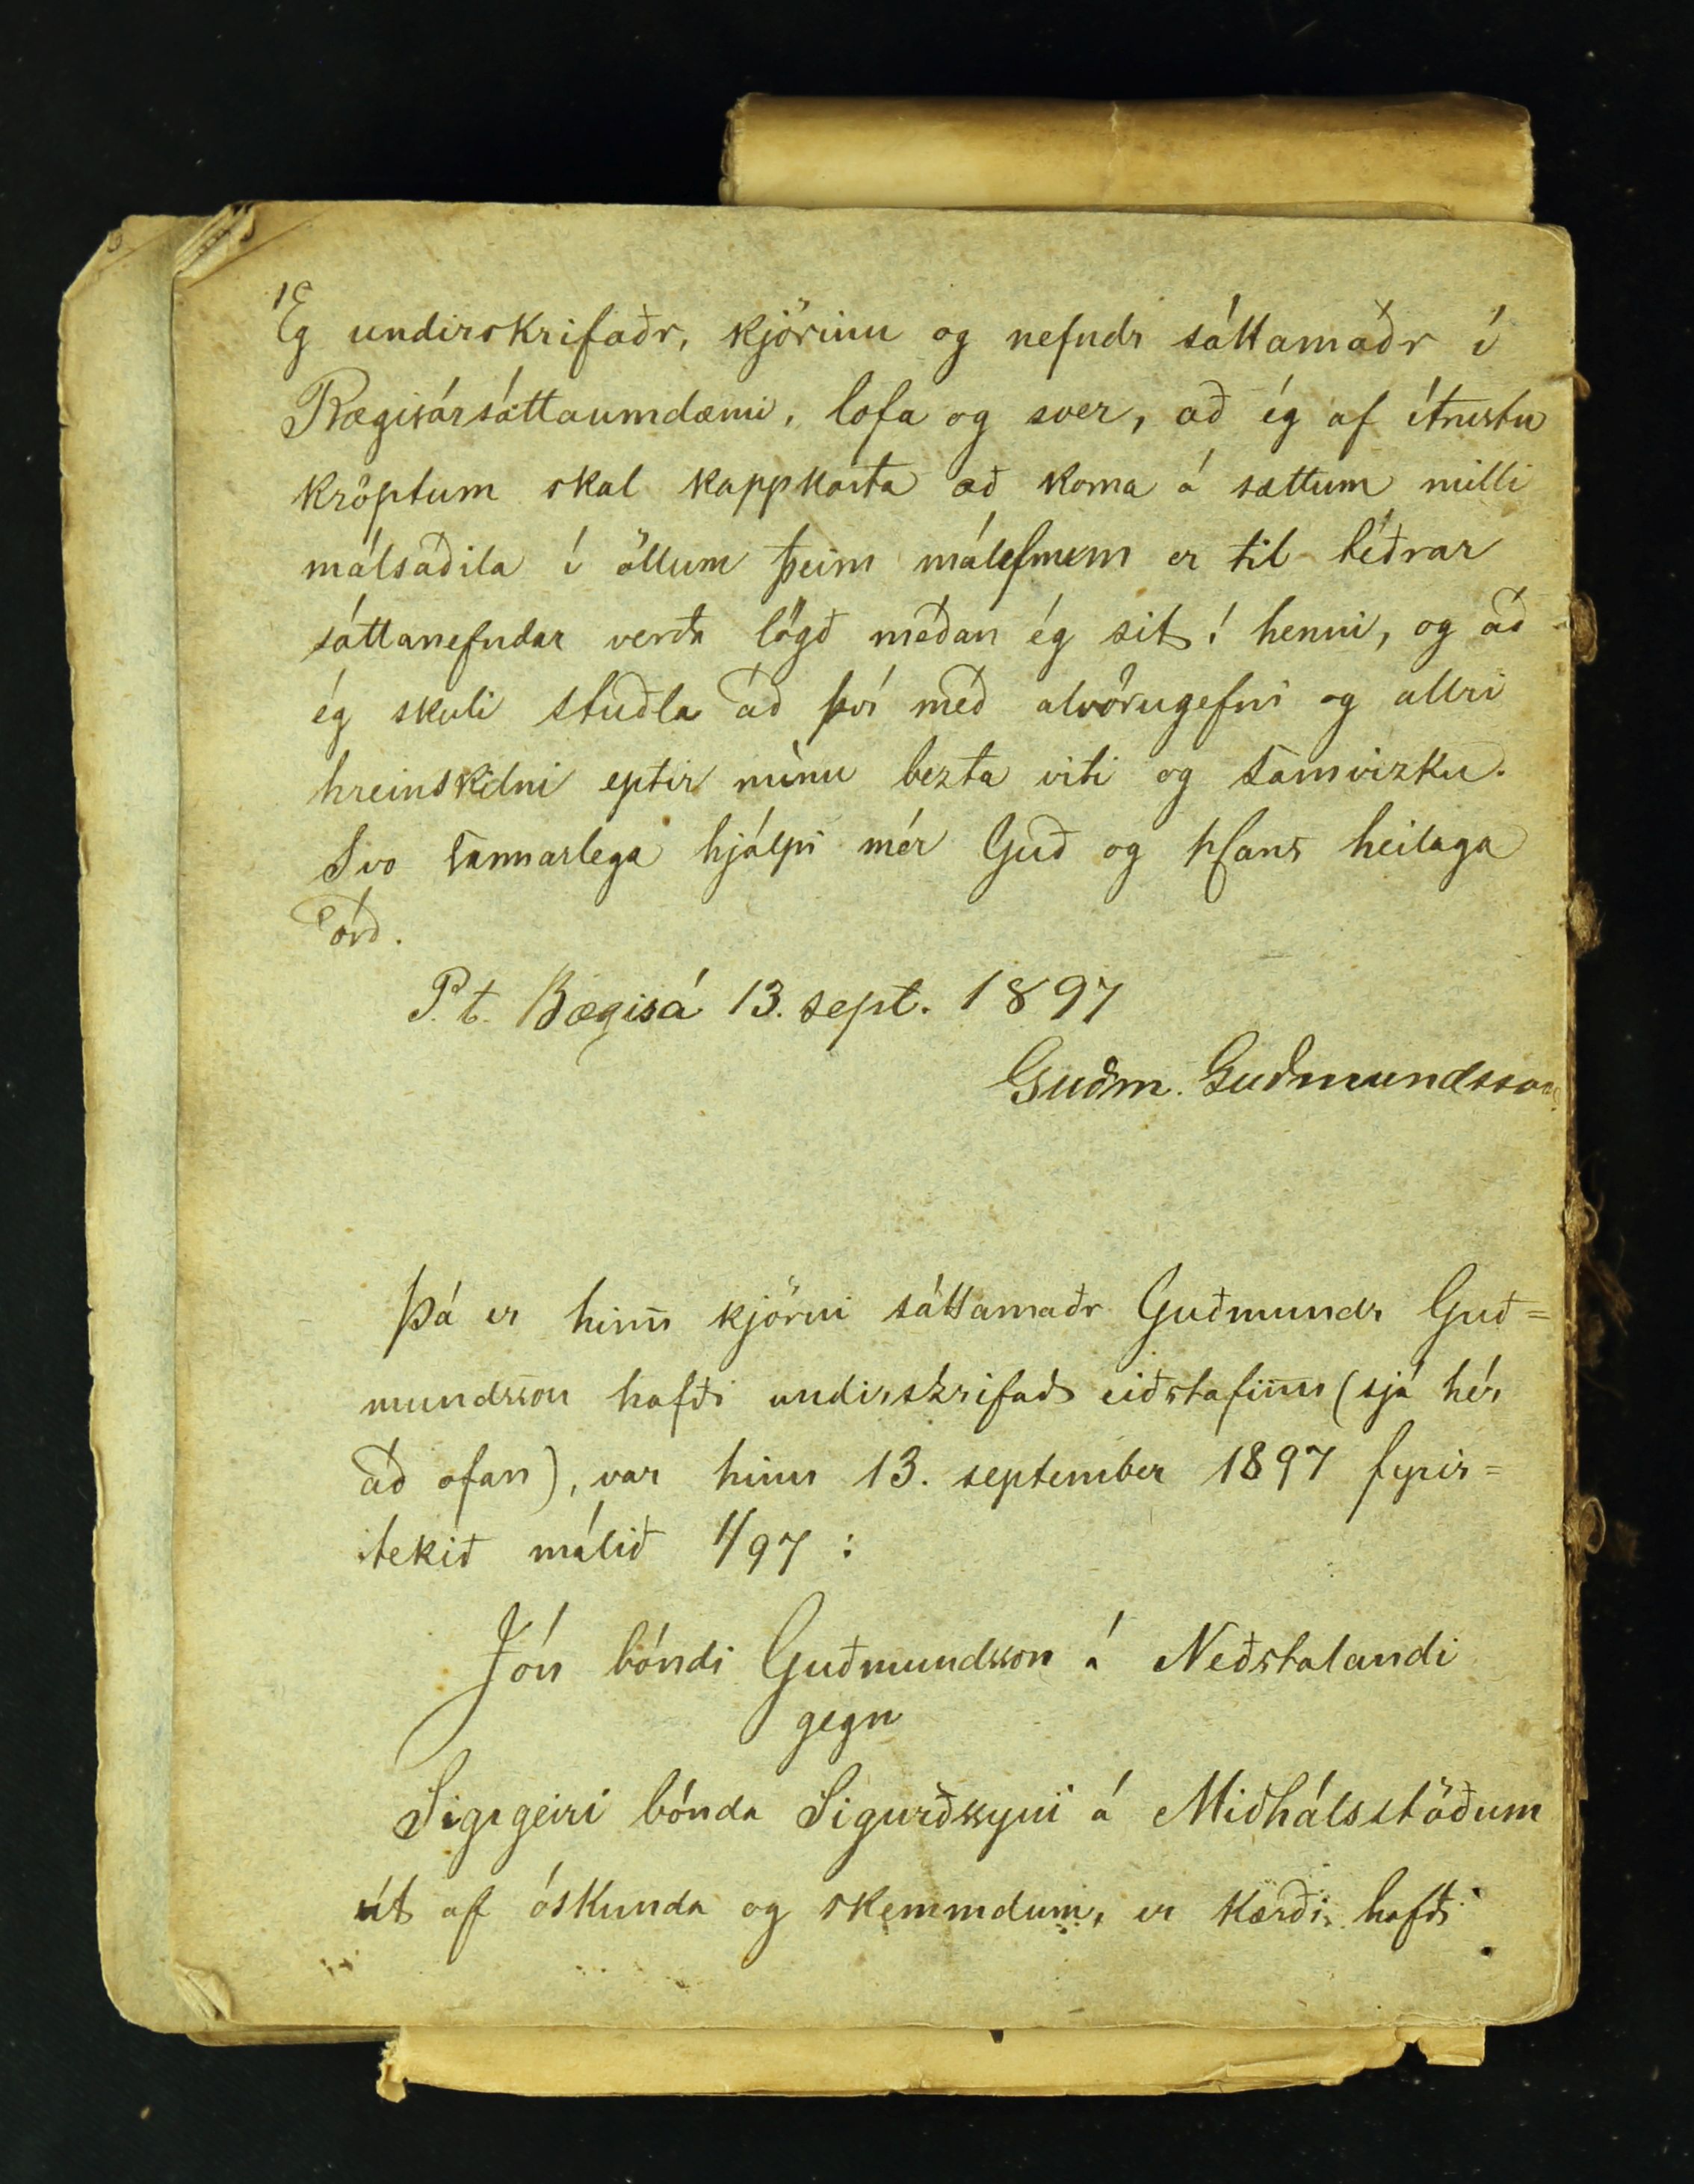 Ég undirskrifaðr, kjörinn og nefndr sáttamaðr í
Bægisársáttaumdæmi, lofa og sver, að ég af ítrustu
kröptum skal kappkosta að koma á sættum milli
málsaðila í öllum þeim málefnum er til téðrar
sáttanefndar verða lögð meðan ég sit í henni, og að
ég skuli stuðla að því með alvörugefni og allri
hreinskilni eptir mínu bezta viti og samvizku.
Svo sannarlega hjálpi mér Guð og Hans heilaga
orð.
P.t. Bægisá 13. sept. 1897
Guðm. Guðmundsson
Þá er hinn kjörni sáttamaðr Guðmundr Guð=
mundsson hafði undirskrifað eiðstafinn (sjá hér
að ofan), var hinn 13. september 1897 fyrir=
tekið málið 1/97 :
Jón bóndi Guðmundsson á Neðstalandi
gegn
Sigrgeiri bónda Sigurðssyni á Miðhálsstöðum
út af óskunda og skemmdum, er kærði hafði